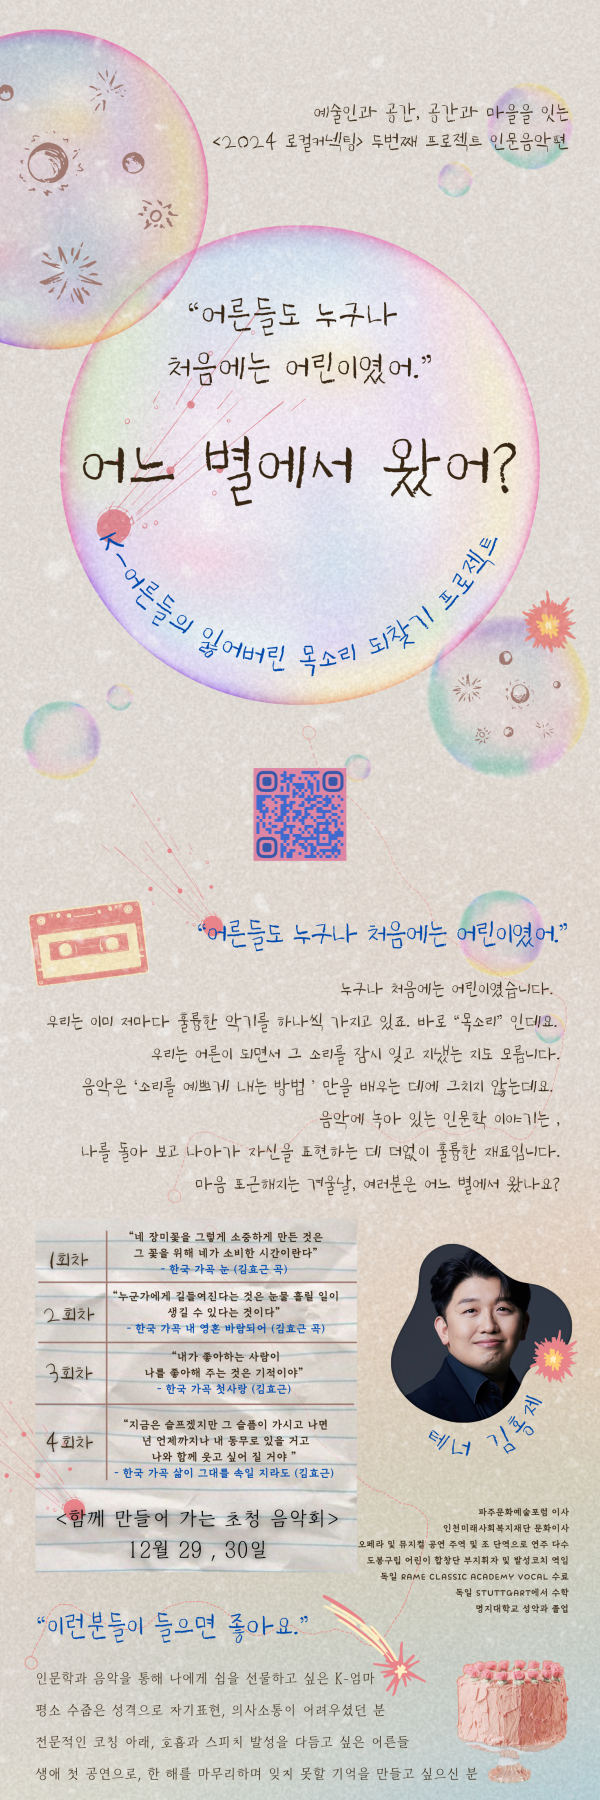 예술인과 공간, 공간과 마을을 잇는
<2024 로컬커넥팅> 두번째 프로젝트 인문음악편
“어른들도 누구나
처음에는 어린이였어.”
어느 별에서 왔어?
K-어른들의 잃어버린 목소리 되찾기 프로젝트
“어른들도 누구나 처음에는 어린이였어.”
누구나 처음에는 어린이였습니다.
우리는 이미 저마다 훌륭한 악기를 하나씩 가지고 있죠. 바로 “목소리” 인데요.
우리는 어른이 되면서 그 소리를 잠시 잊고 지냈는 지도 모릅니다.
음악은 ‘소리를 예쁘게 내는 방법 ’ 만을 배우는 데에 그치지 않는데요.
음악에 녹아 있는 인문학 이야기는 ,
나를 돌아 보고 나아가 자신을 표현하는 데 더없이 훌륭한 재료입니다.
마음 포근해지는 겨울날, 여러분은 어느 별에서 왔나요?
1회차
“네 장미꽃을 그렇게 소중하게 만든 것은
그 꽃을 위해 네가 소비한 시간이란다”
- 한국 가곡 눈 (김효근 곡)
2회차
“누군가에게 길들여진다는 것은 눈물 흘릴 일이
생길 수 있다는 것이다”
- 한국 가곡 내 영혼 바람되어 (김효근 곡)
3회차
“내가 좋아하는 사람이
나를 좋아해 주는 것은 기적이야”
- 한국 가곡 첫사랑 (김효근)
4회차
“지금은 슬프겠지만 그 슬픔이 가시고 나면
넌 언제까지나 내 동무로 있을 거고
나와 함께 웃고 싶어 질 거야 ”
- 한국 가곡 삶이 그대를 속일 지라도 (김효근)
<함께 만들어 가는 초청 음악회>
12월 29 , 30일
테너 김홍제
파주문화예술포럼 이사
인천미래사회복지재단 문화이사
오페라 및 뮤지컬 공연 주역 및 조 단역으로 연주 다수
도봉구립 어린이 합창단 부지휘자 및 발성코치 역임
독일 RAME CLASSIC ACADEMY VOCAL 수료
독일 STUTTGART에서 수학
명지대학교 성악과 졸업
“이런분들이 들으면 좋아요.”
인문학과 음악을 통해 나에게 쉼을 선물하고 싶은 K-엄마
평소 수줍은 성격으로 자기표현, 의사소통이 어려우셨던 분
전문적인 코칭 아래, 호흡과 스피치 발성을 다듬고 싶은 어른들
생애 첫 공연으로, 한 해를 마무리하며 잊지 못할 기억을 만들고 싶으신 분